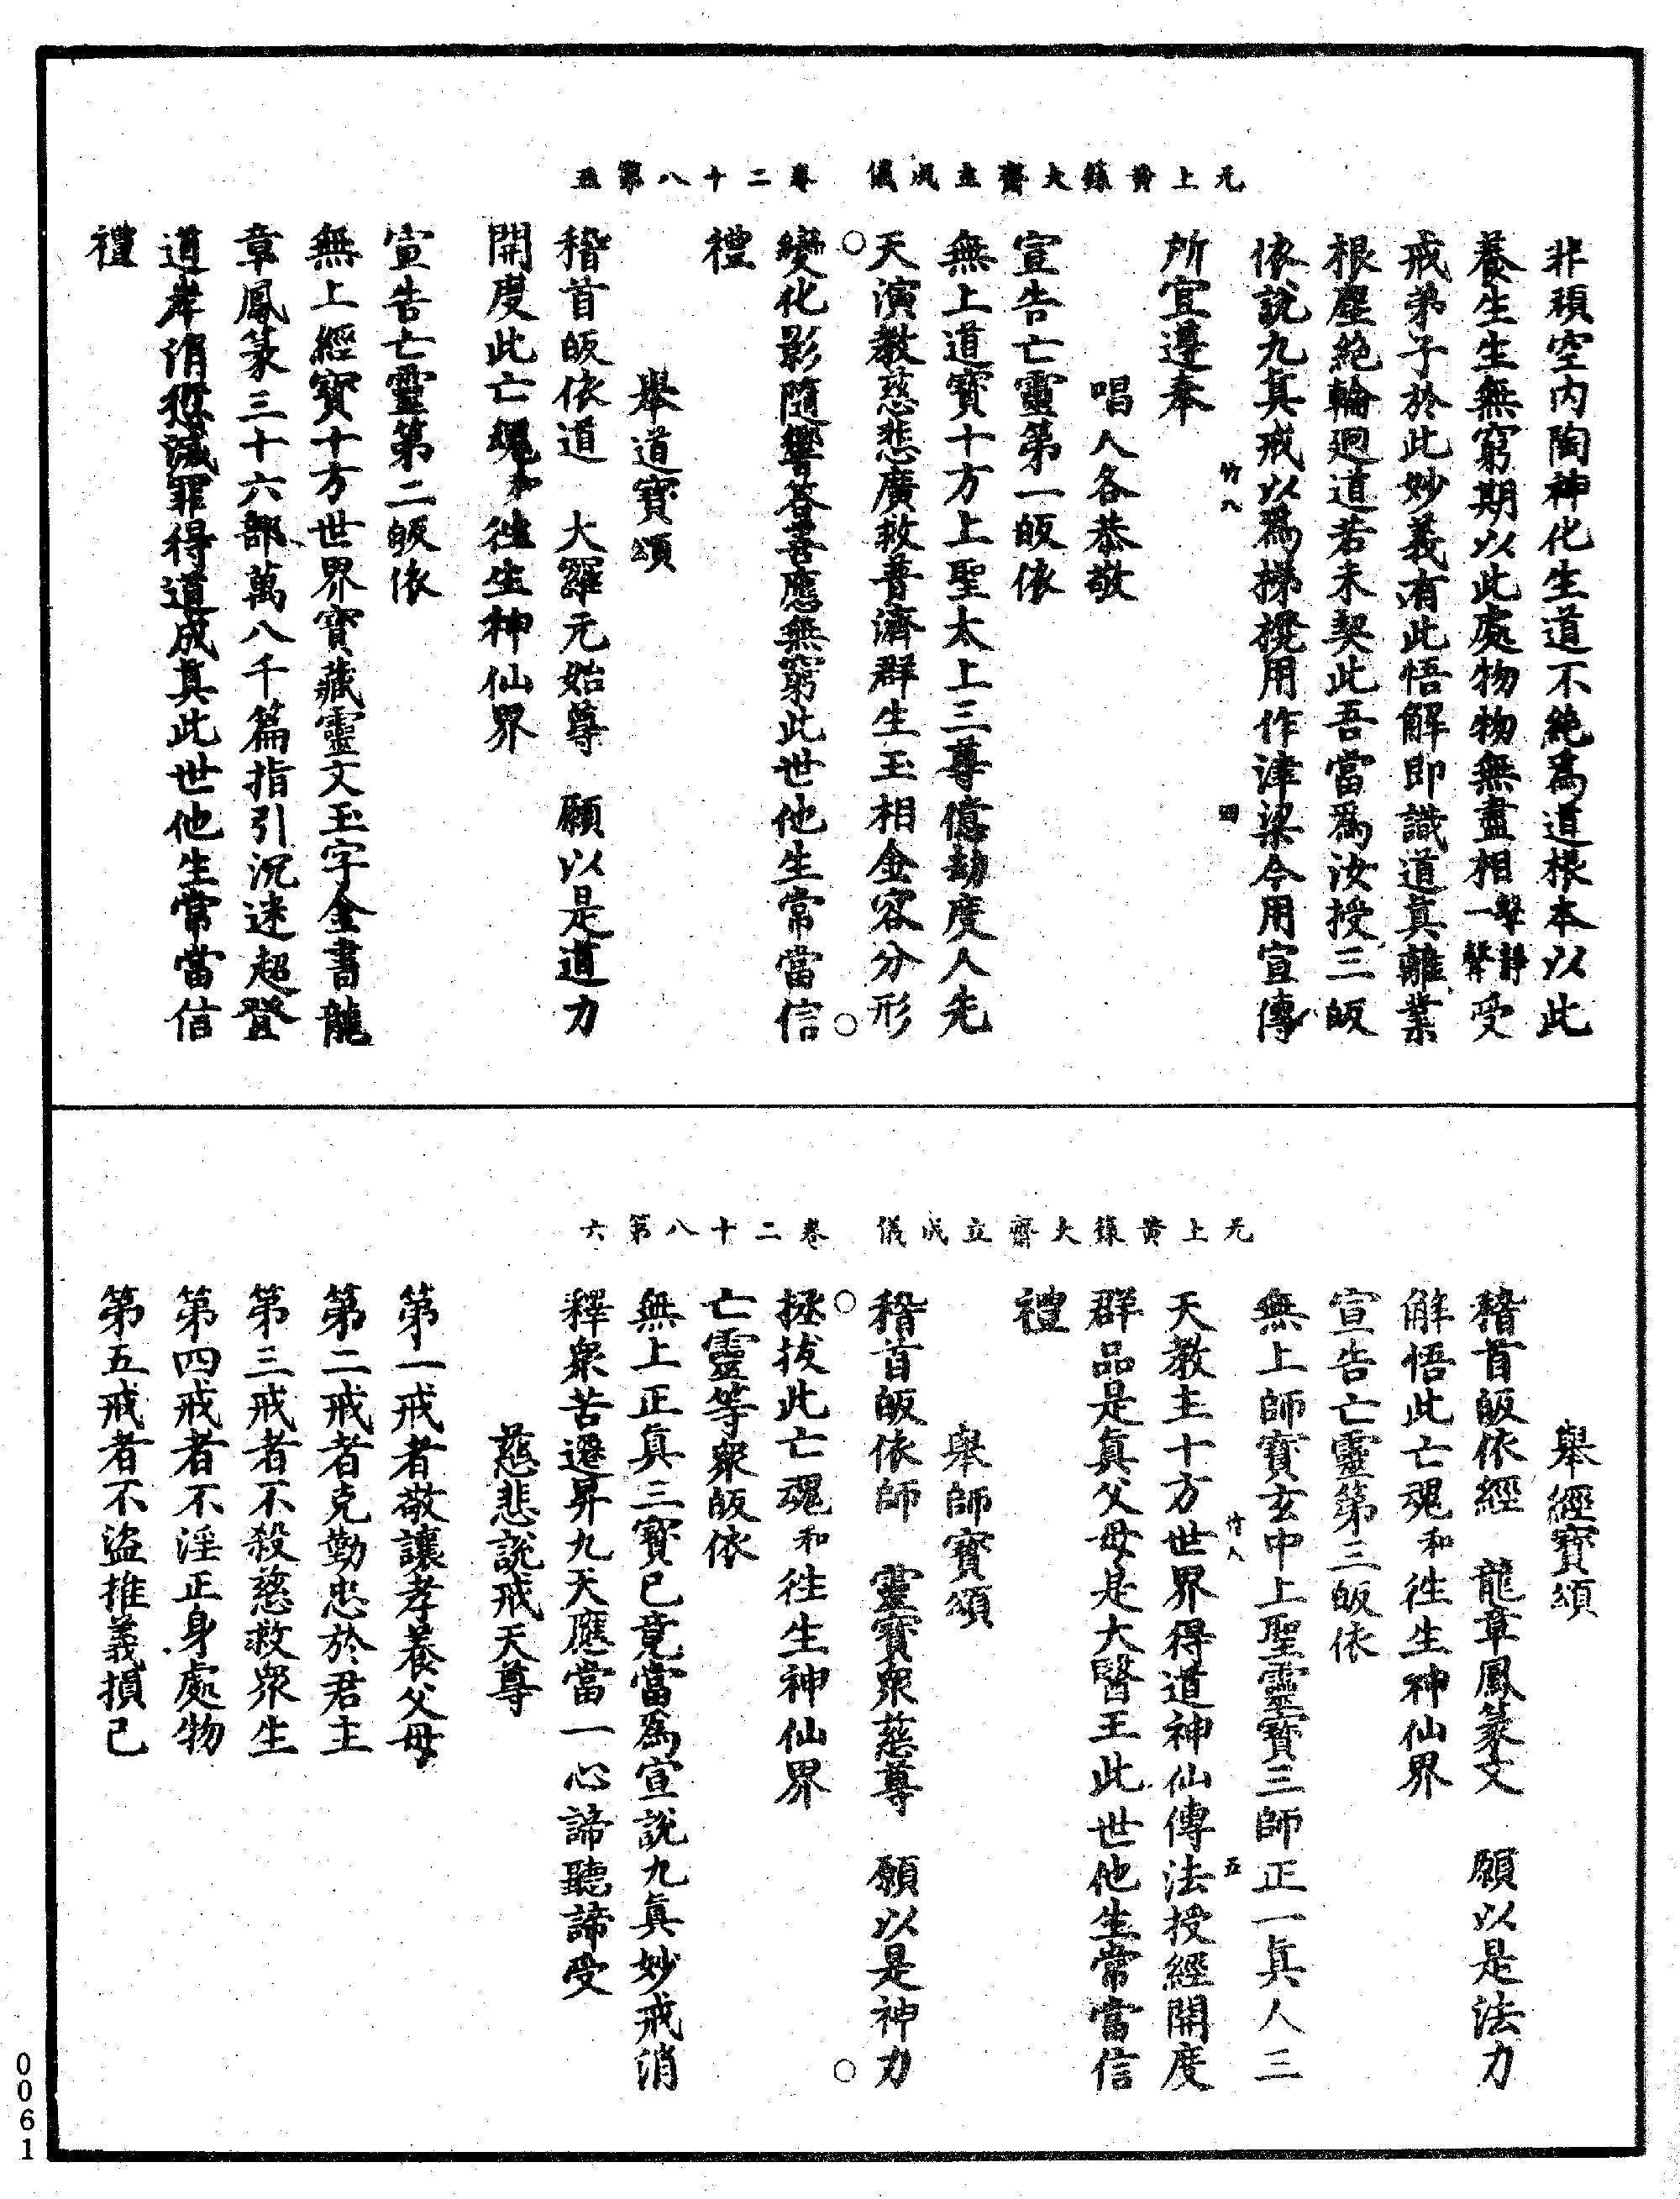 无上黃籙大齋立成儀　卷二十八第五
非頑空內陶神化生道不絶爲道根本以此
養生生無窮期以此處物物無盡相一聲靜一聲受
戒弟子於此妙義有此悟解即識道真離業
根塵絶輪迴道若未契此吾當爲汝授三皈
依說九真戒以爲梯橃用作津梁今用宣傳
竹八　四
所宜遵奉
唱人各恭敬
宣告亡靈第一皈依
無上道寶十方上聖太上三尊億劫度人先
天演教慈悲廣救普濟群生玉相金容分形
變化影隨響答善應無窮此世他生常當信
禮
舉道寶頌
稽首皈依道　大羅元始尊　願以是道力
開度此亡魂和往生神仙界
宣告亡靈第二皈依
無上經寶十方世界寶藏靈文玉字金書龍
章鳳篆三十六部萬八千篇指引沉迷超登
道岸消愆滅罪得道成真此世他生常當信
禮
无上黃籙大齋立成儀　卷二十八第六
舉經寶頌
稽首皈依經　龍章鳳篆文　願以是法力
解悟此亡魂和往生神仙界
宣告亡靈第三皈依
無上師寶玄中上聖靈寶三師正一真人三
竹八　五
天教主十方世界得道神仙傳法授經開度
群品是真父母是大醫王此世他生常當信
禮
舉師寶頌
稽首皈依師　靈寶衆慈尊　願以是神力
拯拔此亡魂和往生神仙界
亡靈等衆皈依
無上正真三寶已竟當爲宣說九真妙戒消
釋衆苦遷昇九天應當一心諦聽諦受
慈悲說戒天尊
第一戒者敬讓孝養父母
第二戒者克勤忠於君主
第三戒者不殺慈救衆生
第四戒者不淫正身處物
第五戒者不盜推義損己
0061